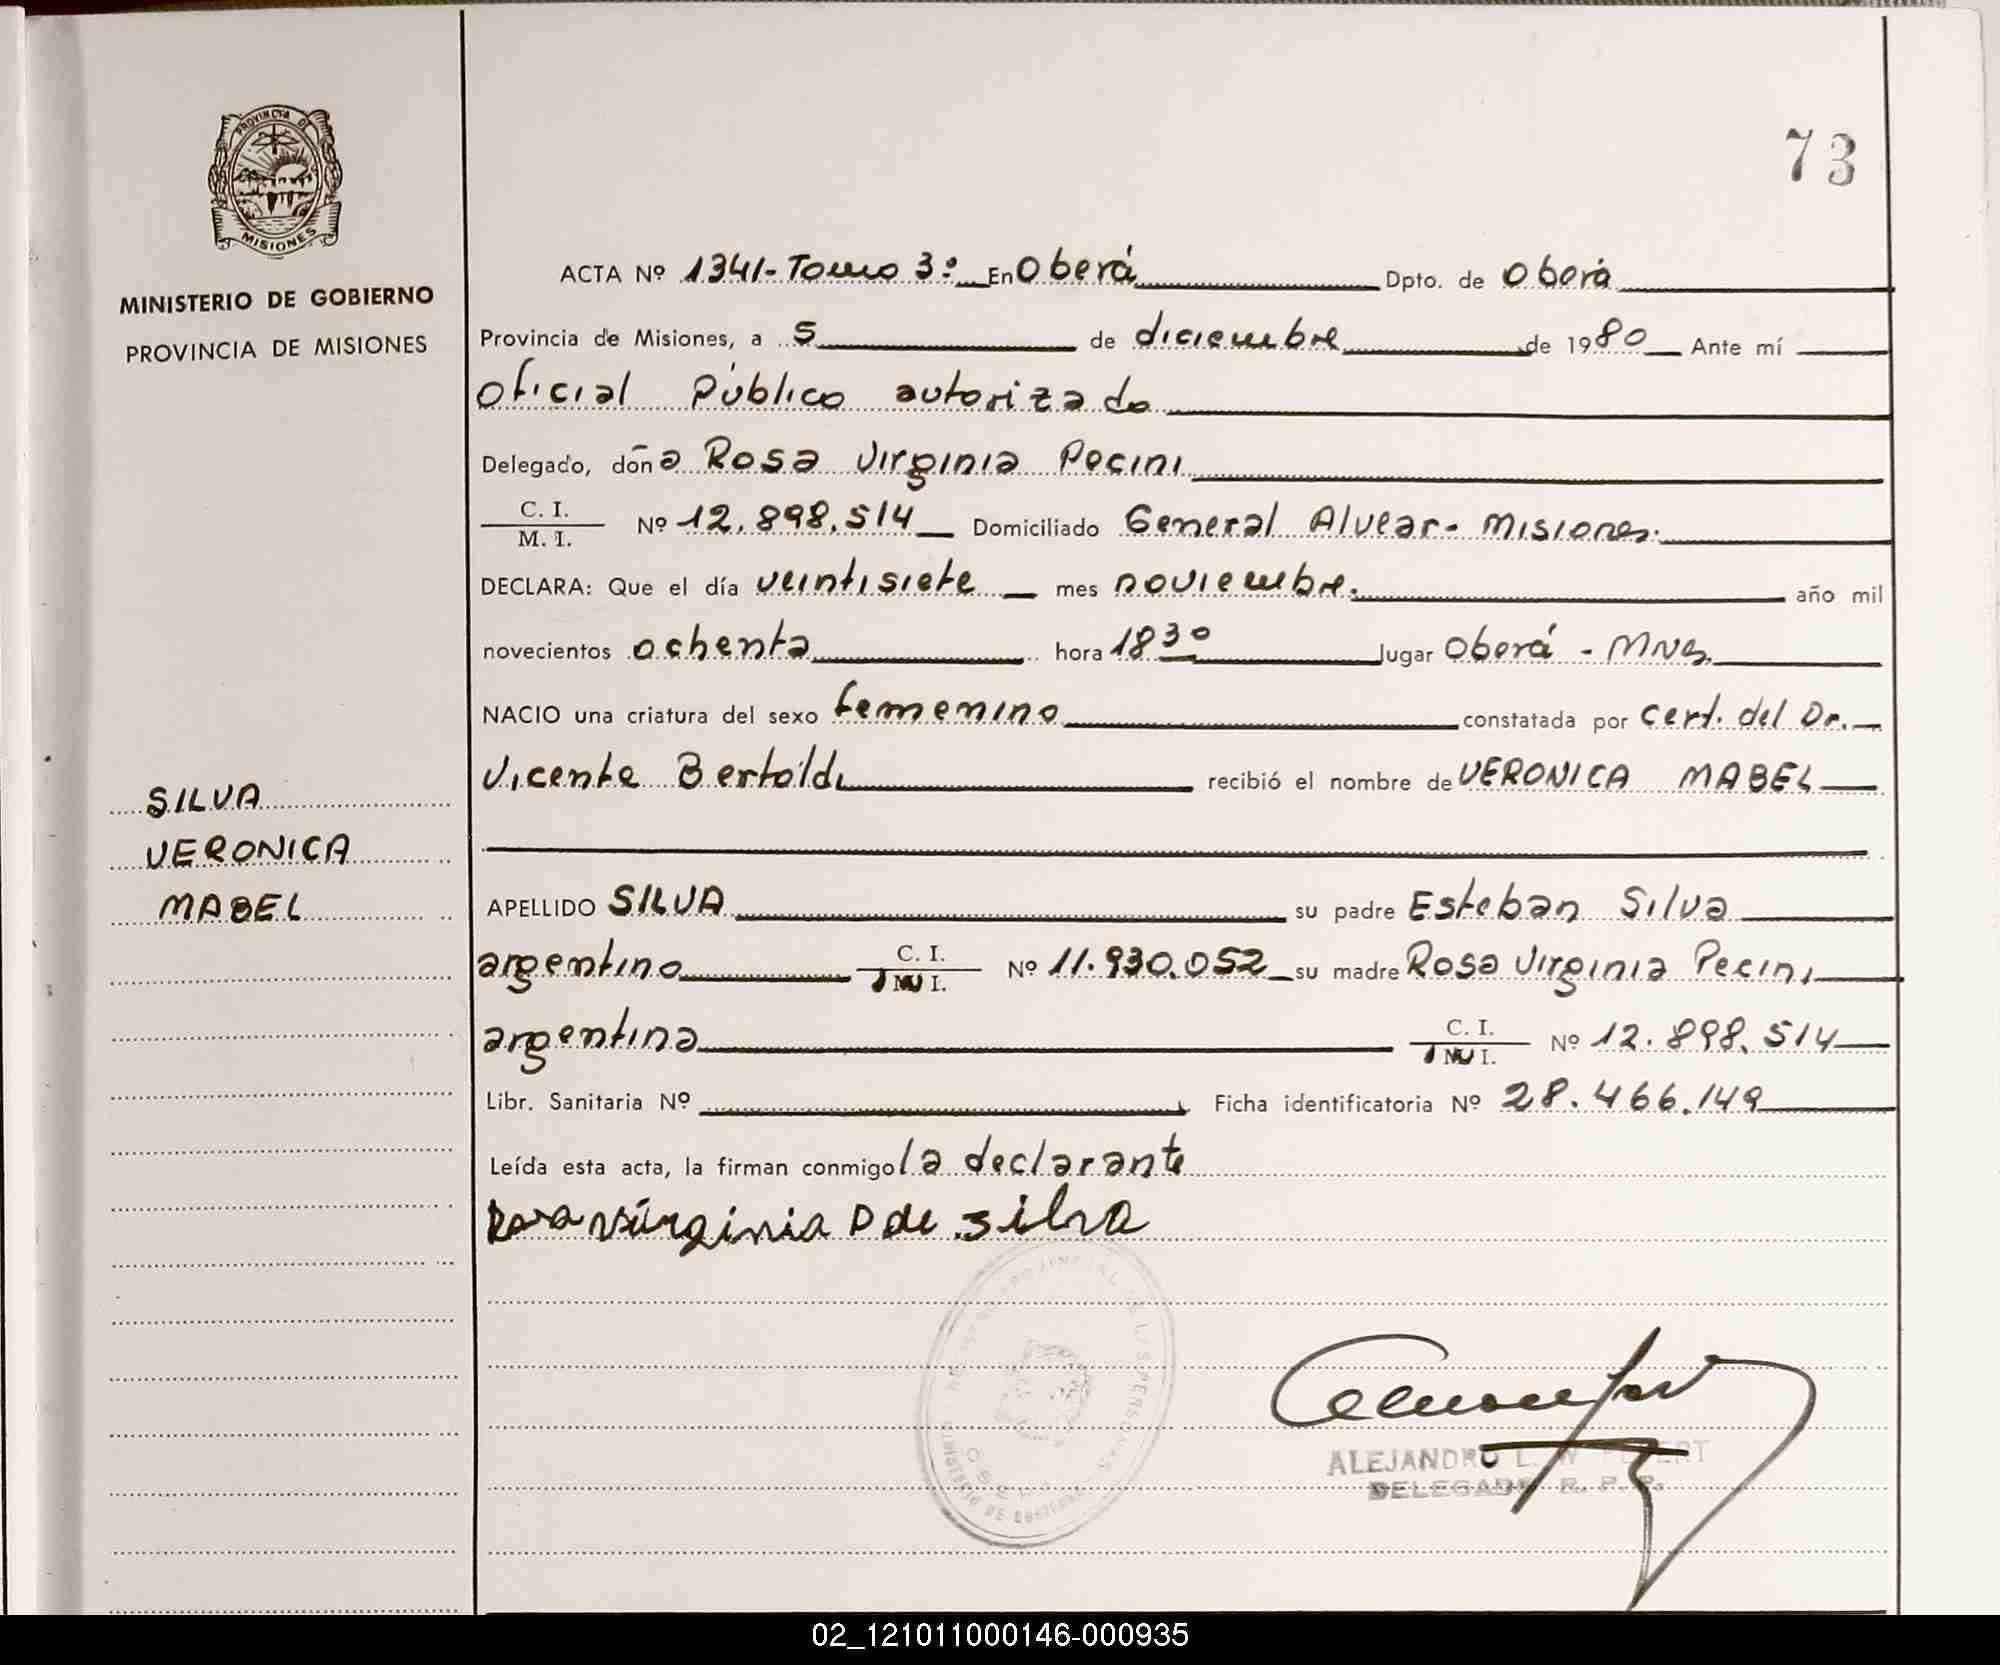 PROVINCIA DE
MISIONES
MINISTERIO DE GOBIERNO
PROVINCIA DE MISIONES
SILVA
VERONICA
MABEL
73
ACTA Nº 1341-Tomo 3º En Oberá Dpto. de Oberá
Provincia de Misiones, a 5 de diciembre de 1980 Ante mí
Oficial Público autorizado
Delegado, doña Rosa Virginia Pecini
C. I.
M. I. Nº 12.898.514 Domiciliado General Alvear - Misiones.
DECLARA: Que el día veintisiete mes noviembre. año mil
novecientos ochenta hora 18 30 lugar Oberá - Mnes.
NACIO una criatura del sexo femenino constatada por cert. del Dr.
Vicente Bertoldi recibió el nombre de VERONICA MABEL
APELLIDO SILVA su padre Esteban Silva
argentino C. I. Nº 11.930.052 su madre Rosa Virginia Pecini
argentina C. I. Nº 12.898.514
Libr. Sanitaria Nº Ficha identificatoria Nº 28.466.149
Leída esta acta, la firman conmigo la declarante
Rosa Virginia P de Silva
ALEJANDRO L. W
DELEGADO R. P. P.
02_121011000146-000935